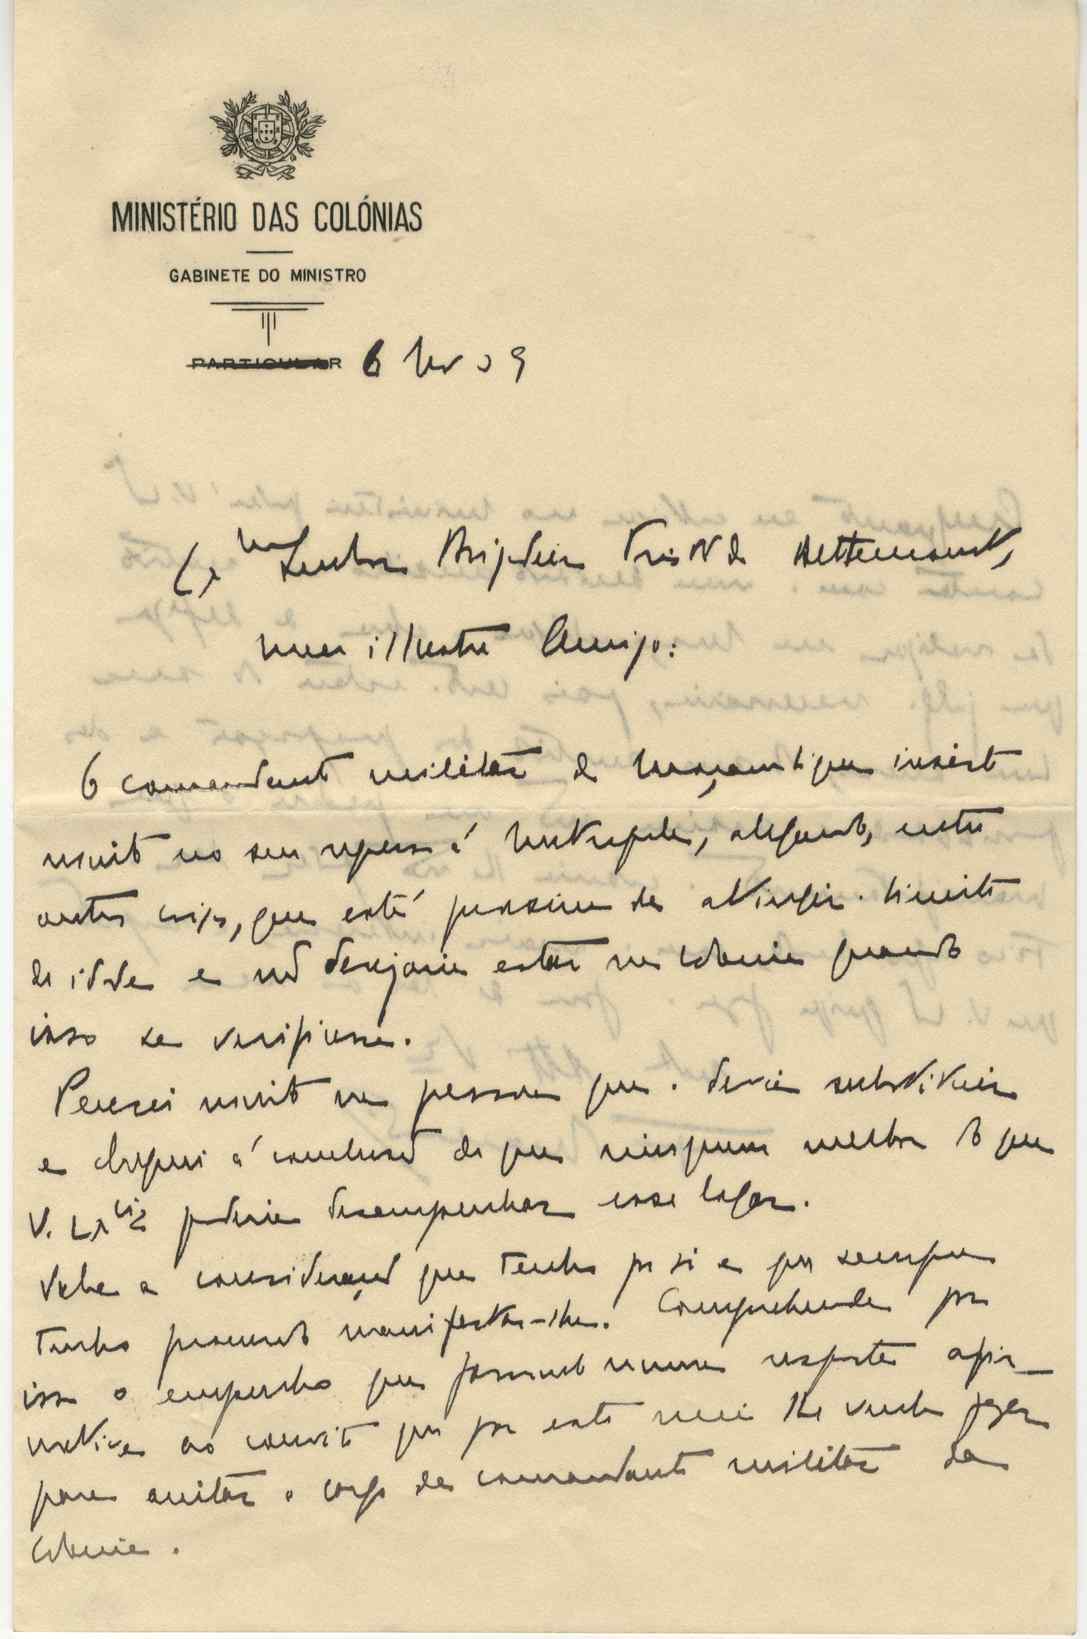 MINISTÉRIO DAS COLÓNIAS
GABINETE DO MINISTRO
PARTICULAR 6
Exmo Senhor Tristão de Bettencourt,
meu illustre Amigo:
O comandante militar de Moçambique insiste
muito no seu regresso á Metropole, alegando, entre
outras coisas, que está proximo de atingir o limite
de idade e não desejaria estar na colonia quando
isso se verificasse.
Pensei muito na pessoa que o devia substituir
e cheguei á conclusão de que ninguem melhor do que
V. Excia poderia desempenhar esse logar.
Sabe a consideração que tenho por si e que sempre
tenho procurado manifestar-lhe. Comprehende por
isso o empenho que numa resposta afir-
mativa ao convite que por este meio lhe venho fazer
para aceitar o cargo de comandante militar da
colonia.